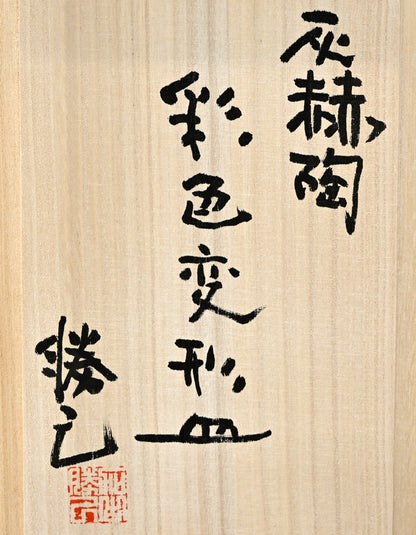 灰赫陶
彩色変形皿
勝己